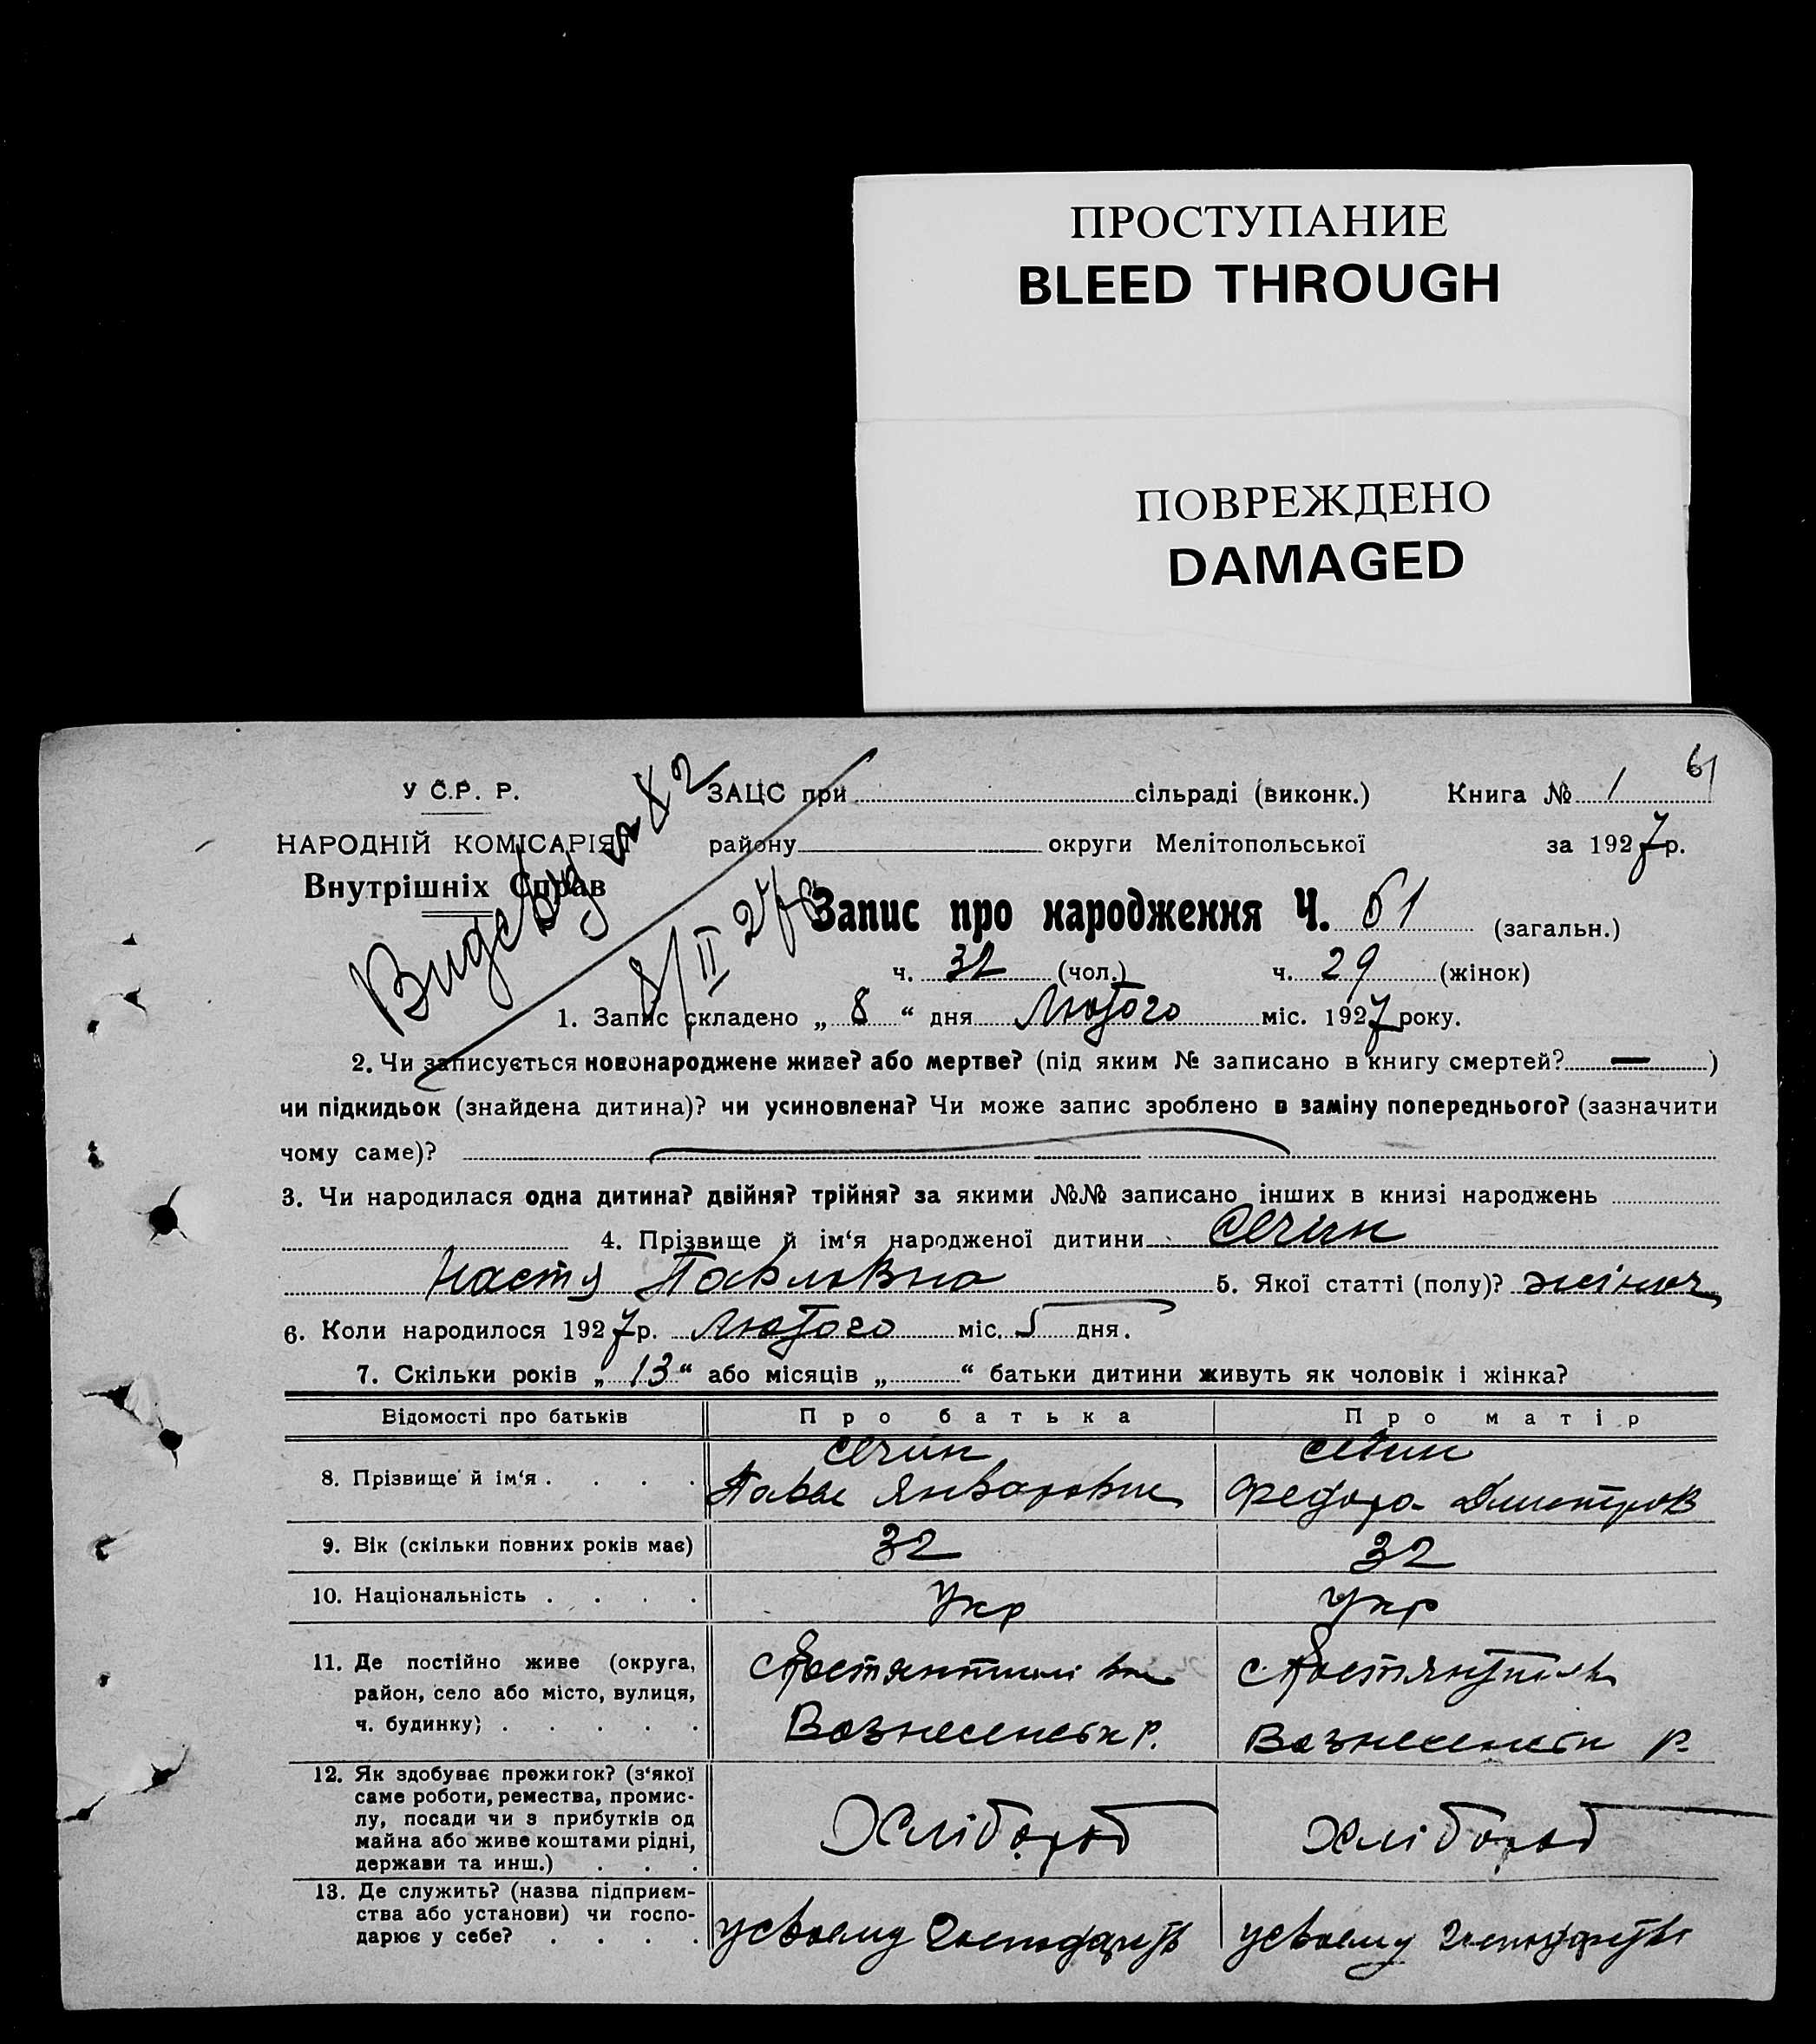 ПРОСТУПАНИЕ
BLEED THROUGH
ПОВРЕЖДЕНО
DAMAGED
61
У С.Р. Р.
ЗАЦС при сільраді (виконк.) Книга № 1
НАРОДНІЙ КОМІСАРІЯТ
району округи Мелітопольської за 1927 р.
Внутрішніх Справ
Запис про народження Ч. 61 (загальн.)
ч. 32 (чол.) ч. 29 (жінок)
8/II 27
1. Запис складено „ 8 “ дня Лютого міс. 1927 року.
2. Чи записується новонароджене живе? або мертве? (під яким № записано в книгу смертей? — )
чи підкидьок (знайдена дитина)? чи усиновлена? Чи може запис зроблено в заміну попереднього? (зазначити
чому саме)?
3. Чи народилася одна дитина? двійня? трійня? за якими №№ записано інших в книзі народжень
4. Прізвище й ім‘я народженої дитини Сечин
Настя Павловна 5. Якої статті (полу)? жіноч
6. Коли народилося 1927 р. Лютого міс. 5 дня.
7. Скільки років „ 13 “ або місяців „ “ батьки дитини живуть як чоловік і жінка?
Відомості про батьків Про батька Про матір
Сечин Сечин
8. Прізвище й ім‘я . . . .
Федора Дмитров
9. Вік (скільки повних років має) 32 32
10. Національність . . . . Укр Укр
11. Де постійно живе (округа,
район, село або місто, вулиця,
ч. будинку) . . . . .
Вознесенськ р. Вознесенськ р.
12. Як здобуває прожиток? (з‘якої
саме роботи, ремества, промис-
лу, посади чи з прибутків од
майна або живе коштами рідні,
держави та инш.) . . .
Хлібороб Хлібороб
13. Де служить? (назва підприєм-
ства або установи) чи госпо-
дарює у себе? . . . .
усвоему усвоему